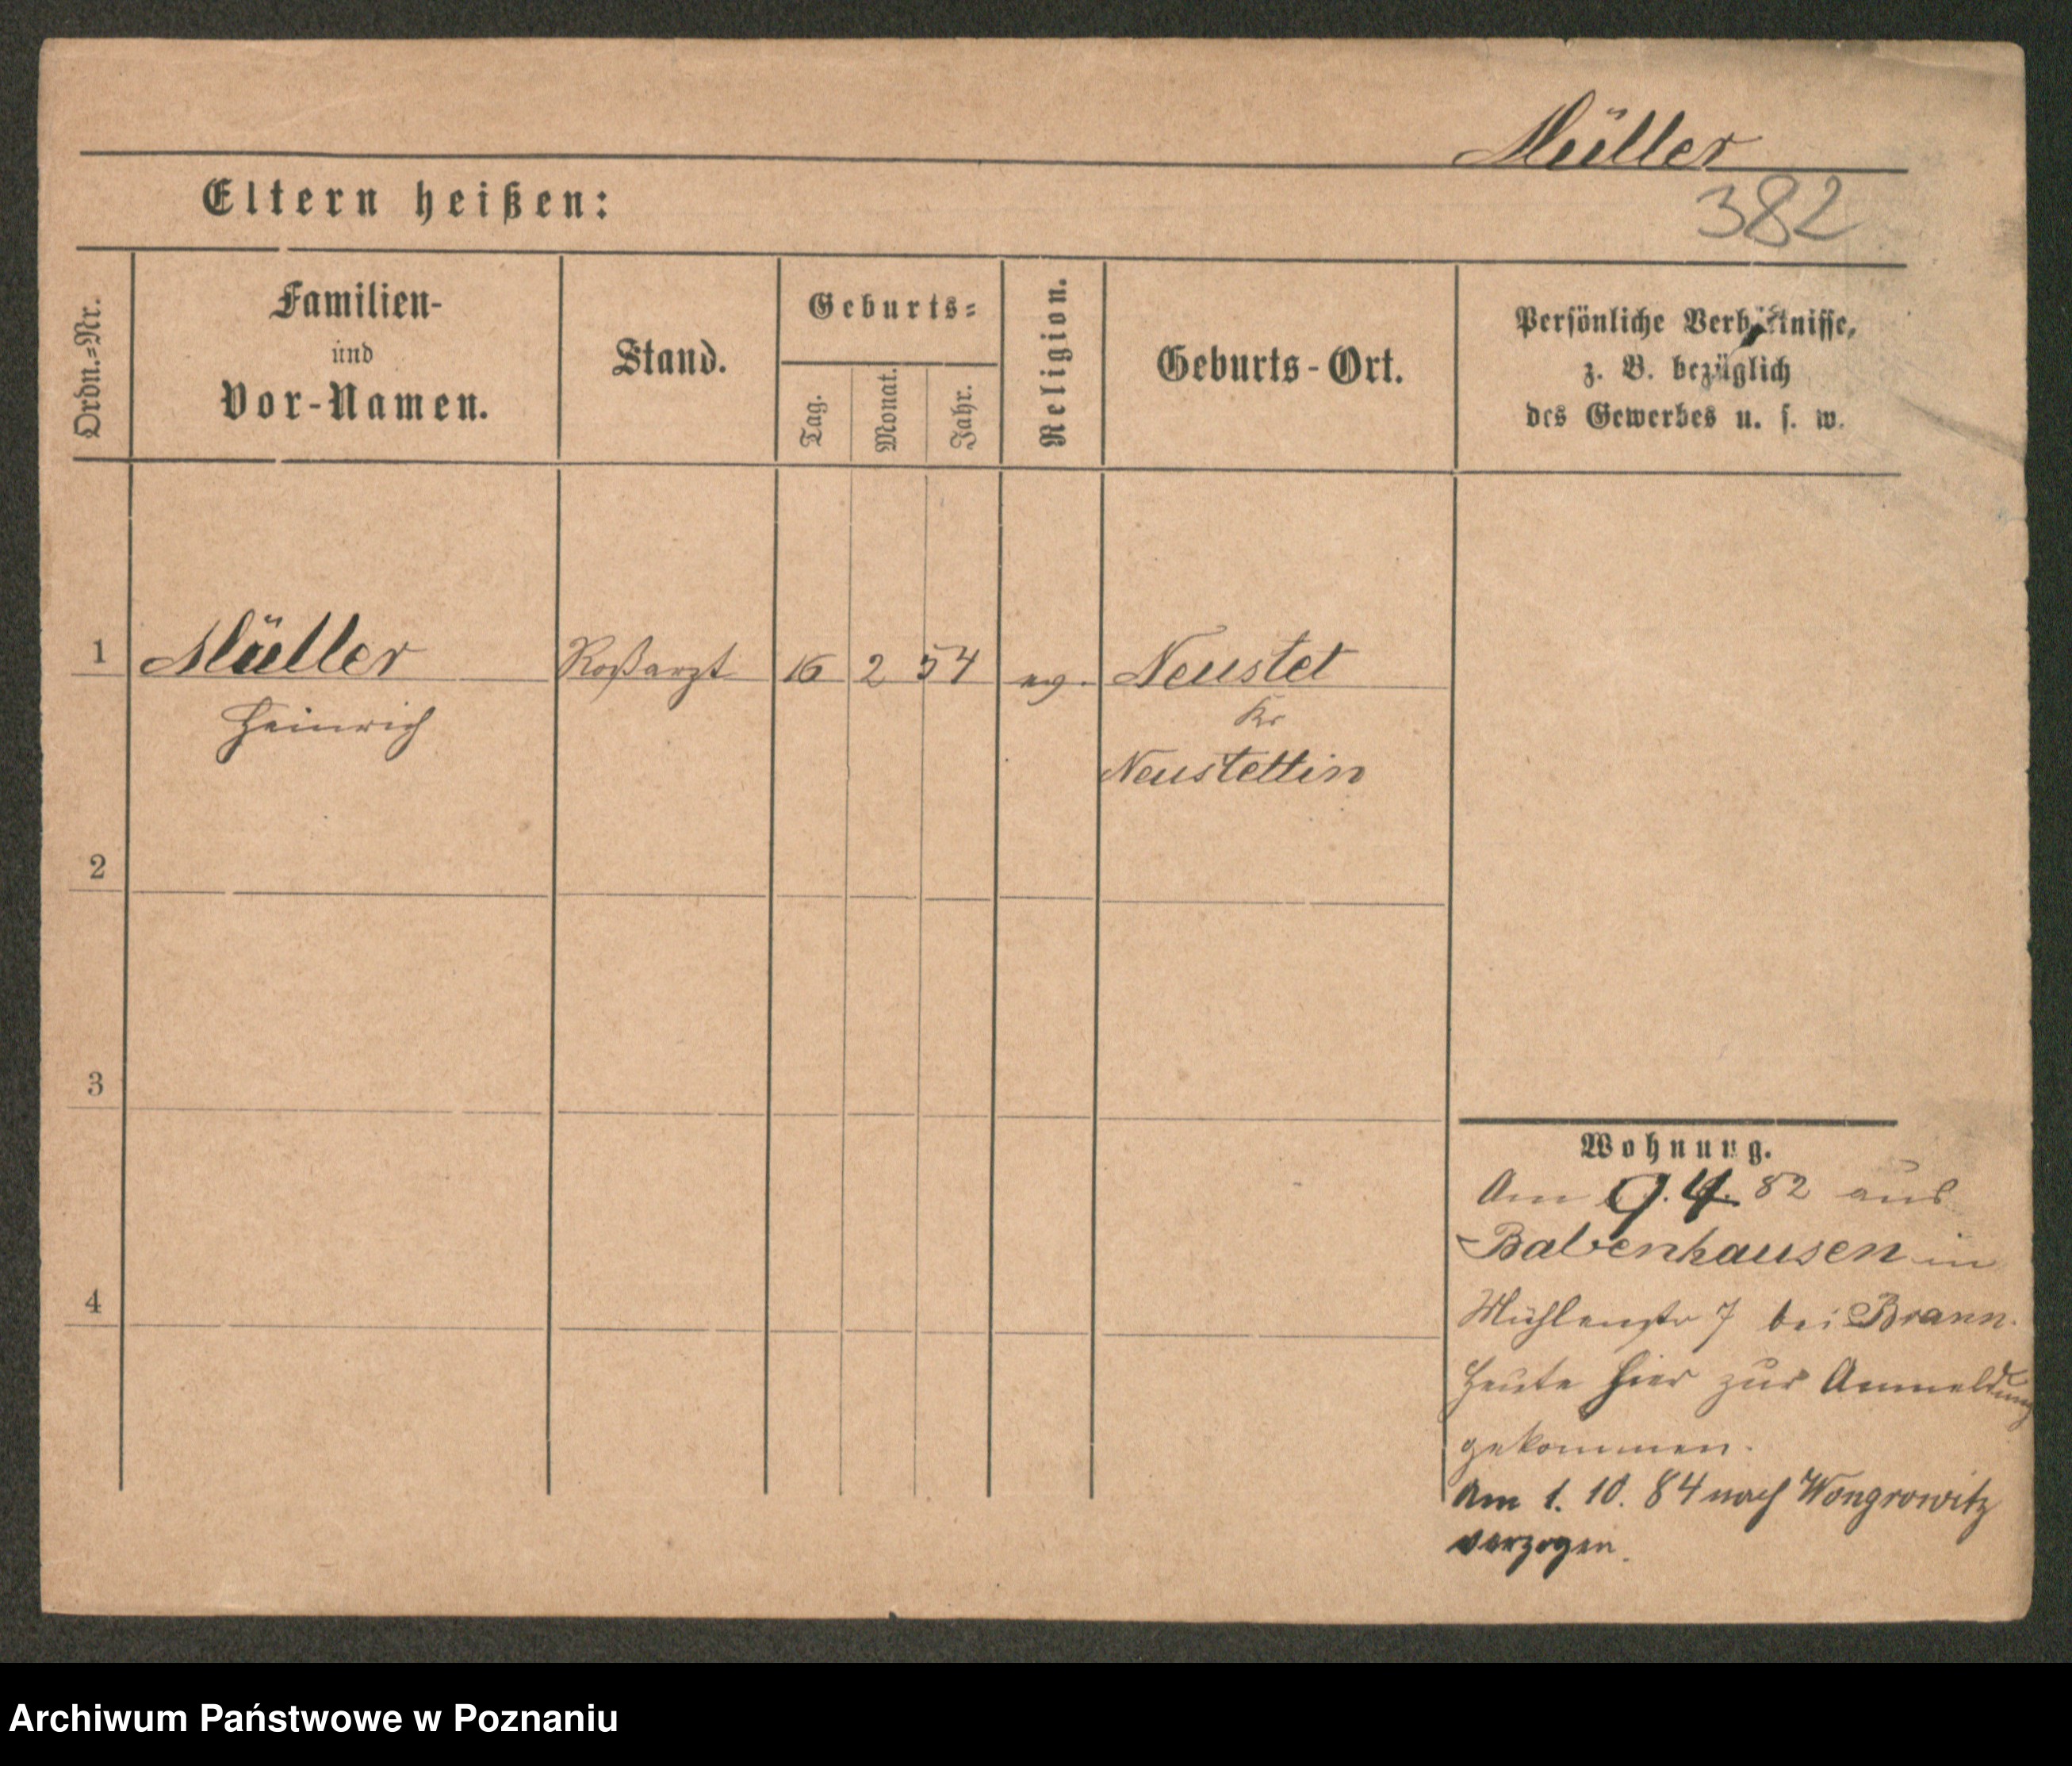 Müller
Eltern heißen:
382
Ordn.=Nr.
Familien-
und
Vor-Namen.
Stand.
Geburts=
Tag.
Monat.
Jahr.
Religion.
Geburts-Ort.
Persönliche Verhältnisse,
z. B. bezüglich
des Gewerbes u. s. w.
1 Müller Roßarzt 16 2 54 ev. Neustet
Heinrich Kr
Neustettin
2
3
4
Wohnung.
Am 9. 4. 82 aus
Babenhausen in
Mühlenstr 7 bei Brann.
Heute hier zur Anmeldung
gekommen.
Am 1. 10. 84 nach Wongrowitz
verzogen.
Archiwum Państwowe w Poznaniu